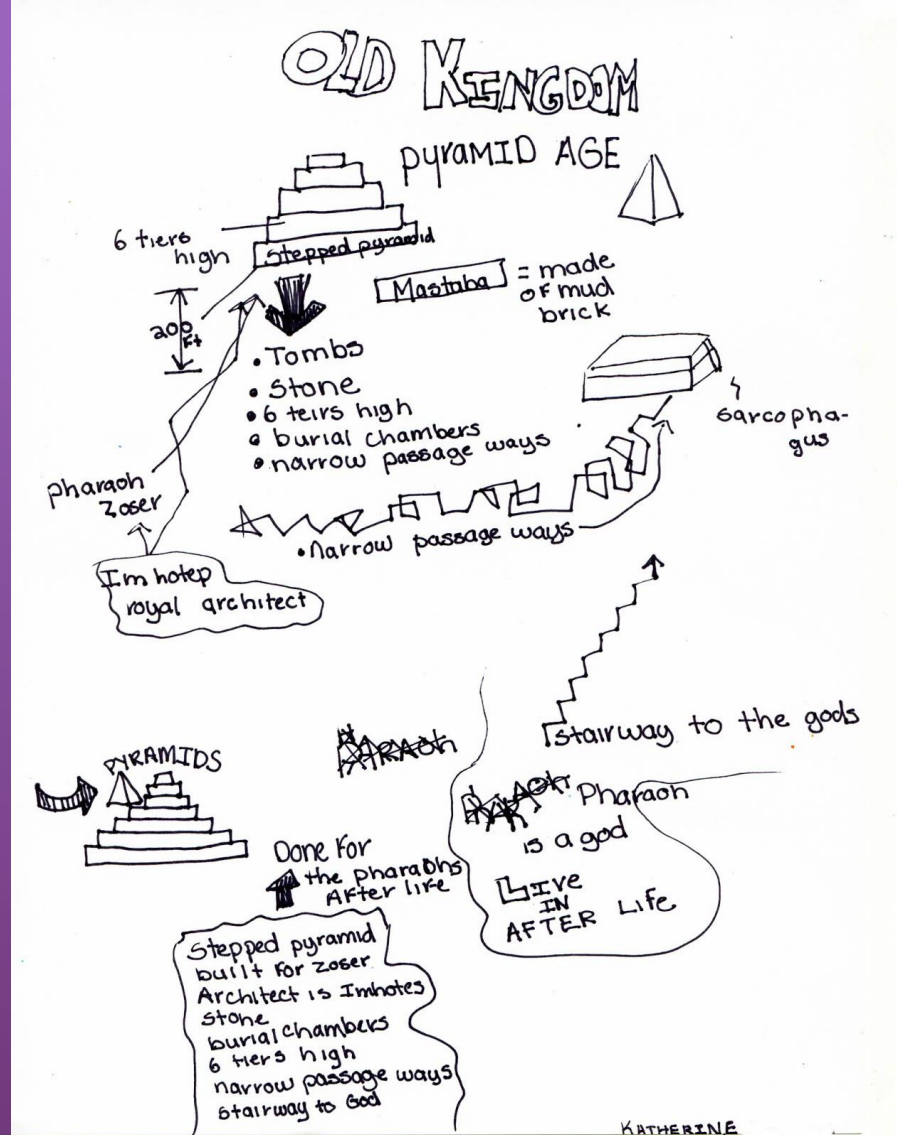 OLD KINGDOM
pyramid AGE
6 tiers
high
Stepped pyramid
Mastaba = made
of mud
brick
200
Ft
• Tombs
• Stone
• 6 teirs high
• burial chambers
• narrow passage ways
Sarcopha-
gus
pharaoh
Zoser
• Narrow passage ways
Im hotep
royal architect
stairway to the gods
PYRAMIDS
Pharaoh
is a god
LIVE
IN
AFTER LIFE
Done For
the pharaohs
After life
Stepped pyramid
built for zoser
Architect is Imhotes
stone
burial chambers
6 tiers high
narrow passage ways
stairway to God
KATHERINE